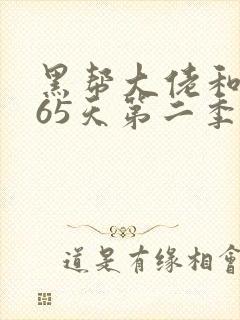 黑帮大佬和
65天第二季
道是有缘相會